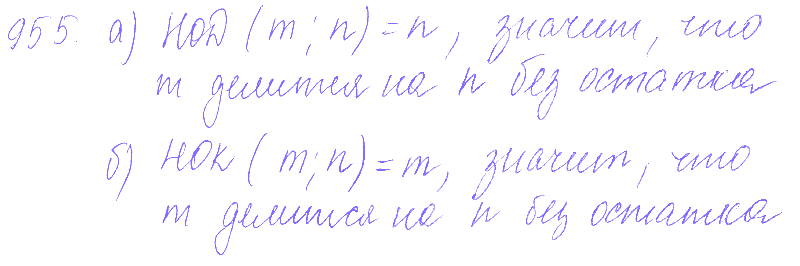 955. а) НОД (m; n) = n, значит, что
m делится на n без остатка
б) НОК (m; n) = m, значит, что
m делится на n без остатка